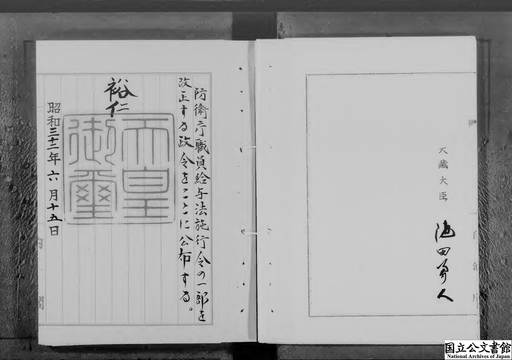 大藏大臣
池田勇人
防衛庁職員給与法施行令の一部を
改正する政令をここに公布する。
裕仁
天皇
御璽
昭和三十二年六月十五日
国立公文書館
National Archives of Japan